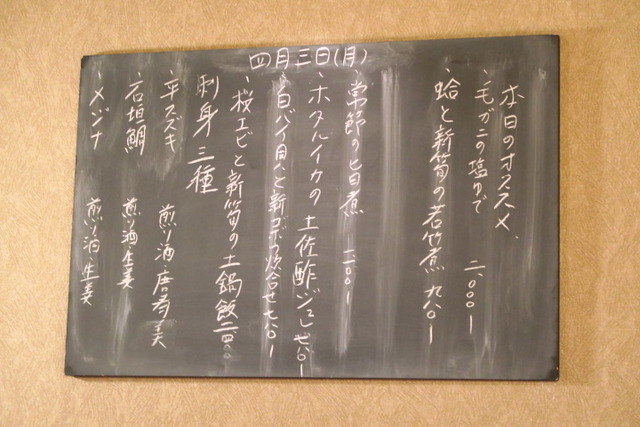 四月三日(月)
本日のオススメ、
・毛ガニの塩ゆで 二、〇〇〇ー
蛤と新筍の若竹煮 九八〇ー
常節の旨煮 一、〇〇〇ー
・ホタルイカの土佐酢ジュレ 七八〇ー
・白バイ貝と新ゴボウ炊合せ 七八〇ー
・桜エビと新筍の土鍋飯 二四〇〇
刺身三種
平スズキ 煎り酒・唐寿美
・石垣鯛 煎り酒・生姜
・メジナ 煎り酒・生姜